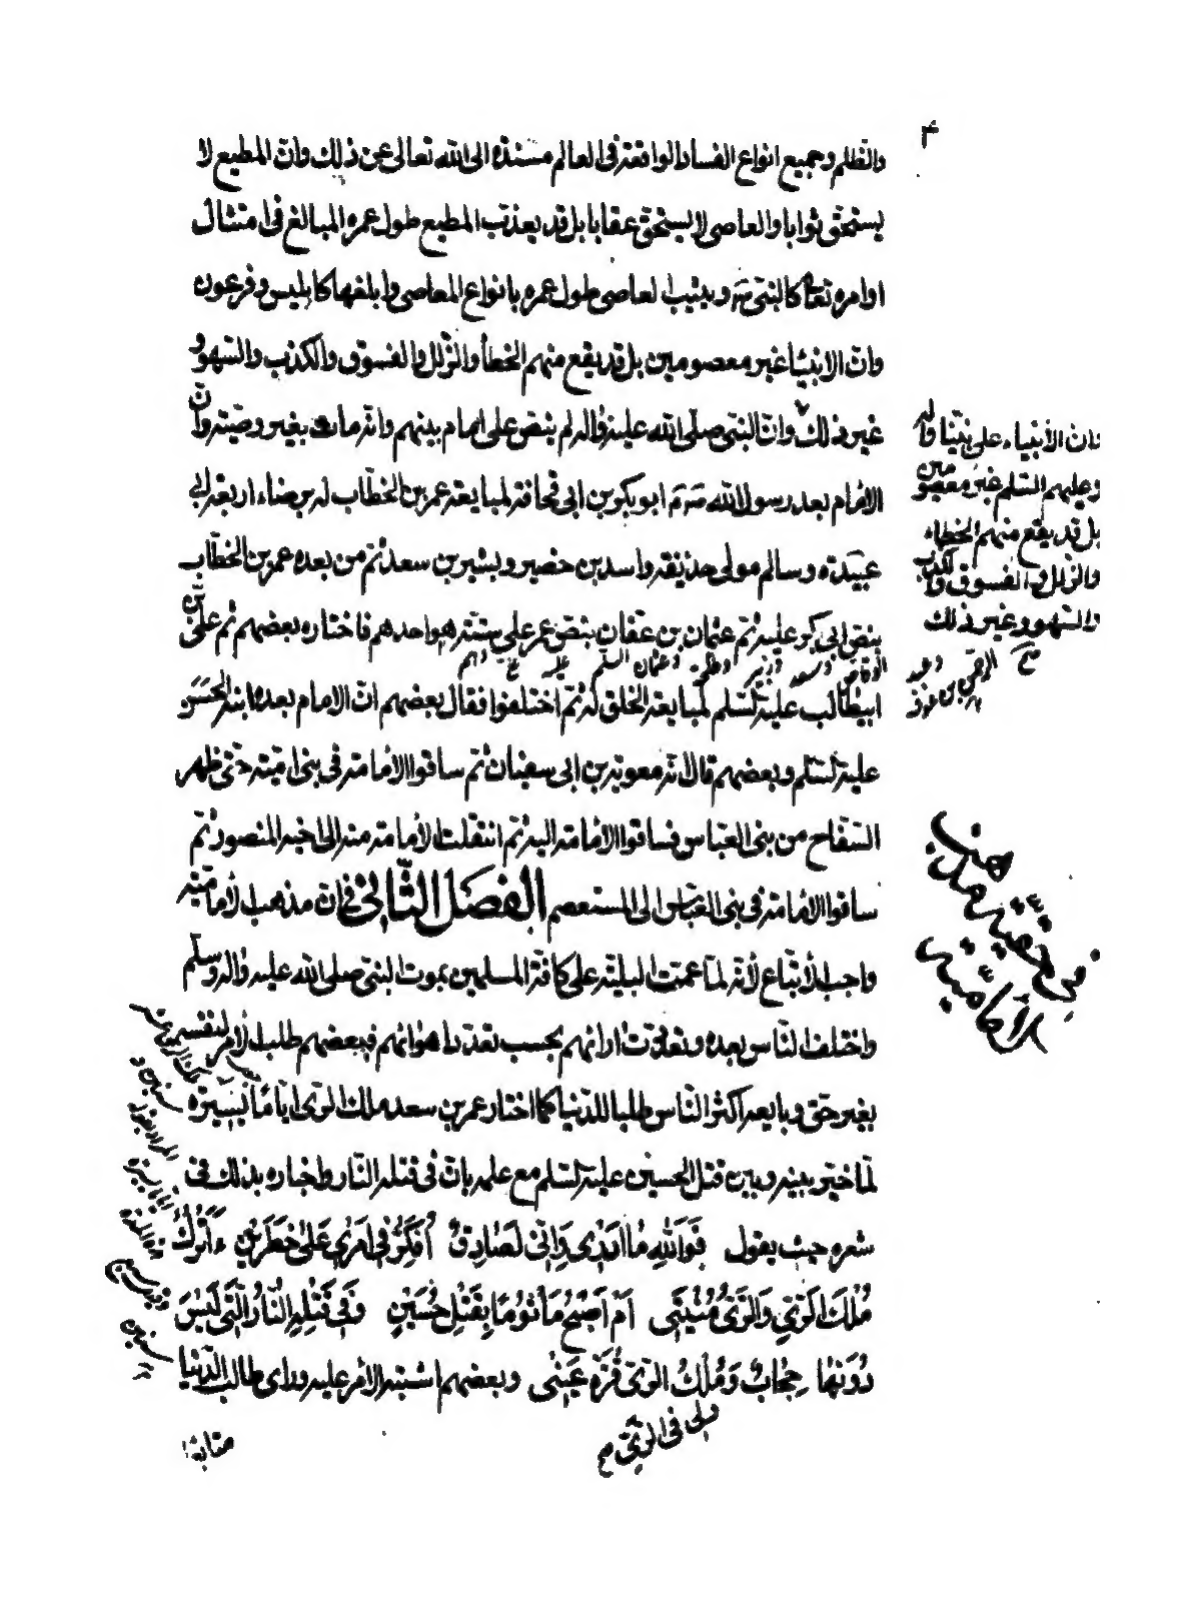 ۴
والظلم وجميع انواع الفساد الواقعة فى العالم مسندة الى الله تعالى عن ذلك وان المطيع لا
يستحق ثوابا والعاصى لا يستحق عقابا بل قد يعذب المطيع طول عمره المبالغ فى امتثال
اوامره تعالى كالنبى ص ويثيب العاصى طول عمره بانواع المعاصى وابلغها كابليس وفرعون
وان الانبيا غير معصومين بل قد يقع منهم الخطأ والزلل والفسوق والكذب والسهو و
غير ذلك وان النبى صلى الله عليه واله لم ينص على امام بينهم وانه مات بغير وصية وان
الامام بعد رسول الله ص ابو بكر بن ابى قحافة لمبايعة عمر بن الخطاب له برضاء اربعة ابى
عبيدة وسالم مولى حذيفة واسد بن حضير وبشير بن سعد ثم من بعده عمر بن الخطاب
بنص ابى بكر عليه ثم عثمان بن عفان بنص عمر على ستة هو احدهم فاختاره بعضهم ثم على بن
ابيطالب عليه السلم لمبايعة الخلق له ثم اختلفوا فقال بعضهم ان الامام بعده ابنه الحسن
عليه السلم وبعضهم قال انه معوية بن ابى سفيان ثم ساقوا الامامة فى بنى امية حتى ظهر
السفاح من بنى العباس فساقوا الامامة اليه ثم انتقلت الامامة منه الى اخيه المنصور ثم
ساقوا الامامة فى بنى العباس الى المستعصم الفصل الثانى فى ان مذهب الامامية
واجب الاتباع لانه لما عمت البلية على كافة المسلمين بموت النبى صلى الله عليه واله وسلم
واختلف الناس بعده وتعددت ارائهم بحسب تعدد اهوائهم فبعضهم طلب الامر لنفسه
بغير حق وبايعه اكثر الناس طلبا للدنيا كما اختار عمر بن سعد ملك الرى اياما يسيرة
لما خير بينه وبين قتل الحسين عليه السلم مع علمه بان فى قتله النار واخباره بذلك فى
شعره حيث يقول فَوَاللّٰهِ مَا اَدْرِى وَاِنّى لَصَادِقٌ اُفَكِّرُ فِى اَمْرِى عَلىٰ خَطَرَيْنِ ءَاَتْرُكُ
مُلْكَ الرَّىِ وَالرَّىُّ مُنْيَتِى اَمْ اَصْبَحُ مَأْثُومًا بِقَتْلِ حُسَيْنٍ وَفِى قَتْلِهِ النَّارُ الَّتِى لَيْسَ
دُونَهَا حِجَابٌ وَمُلْكُ الرَّى قُرَّةُ عَيْنِى وبعضهم اشتبه الامر عليه وراى طالب الدنيا
متابعا
ولى فى الرى
فان الأنبياء على نبينا واله
وعليهم السلم غير معصومين
بل قد يقع منهم الخطاء
والزلل والفسوق والكذب
والسهو وغير ذلك
وعبد الرحمن بن عوف
فى حقية مذهب
الأمامية